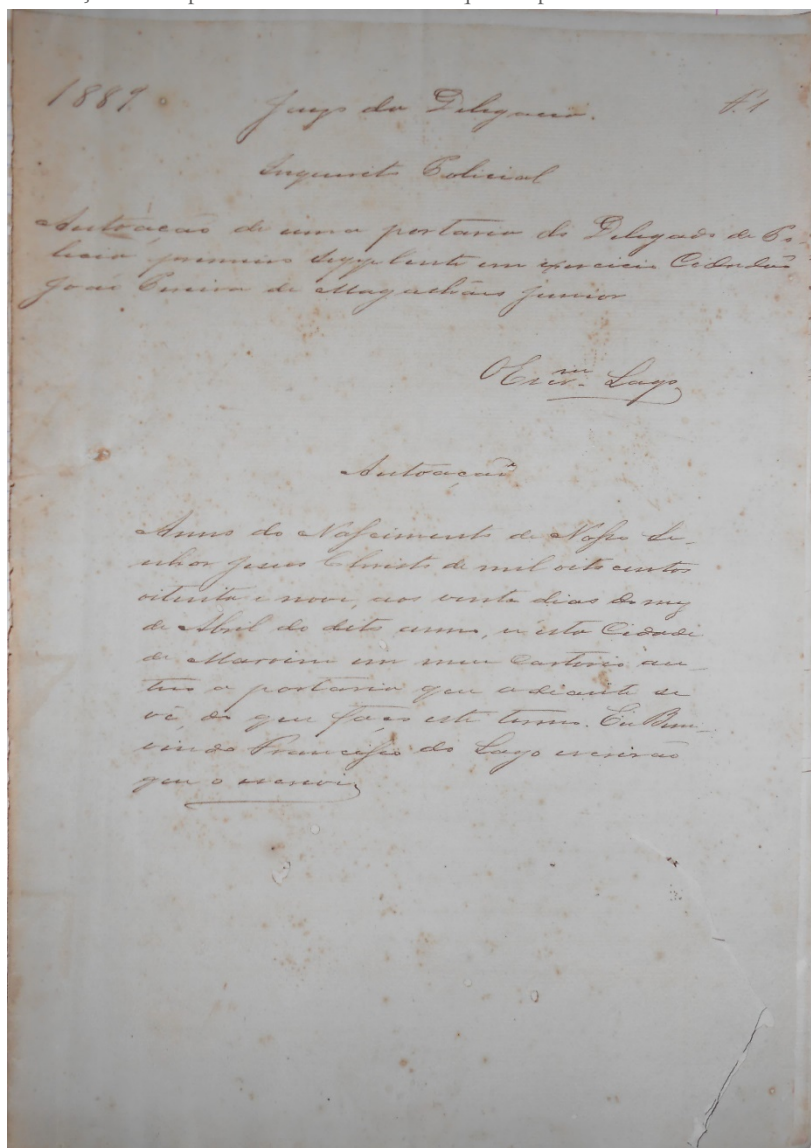 1889
Juizo da Delegacia.
f. 1
Inquerito Policial
Autoação de uma portaria do Delegado de Po-
licia primeiro supplente em exercicio Cidadão
João Pereira de Magalhães Junior
O Escr.m Lago
Autoação
Anno do Nascimento de Nosso Se-
nhor Jesus Christo de mil oito centos
oitenta e nove, aos vinte dias do mez
de Abril do dito anno, n'esta Cidade
de Maroim em meu Cartorio au-
tuo a portaria que adiante se
vê do que faço este termo. Eu Bem-
vindo Francisco do Lago escrivão
que o escrevi